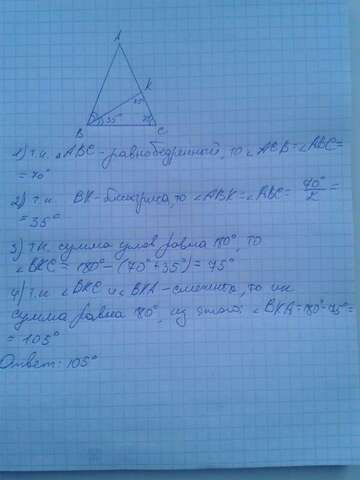 A
K
75
35°
70
B
C
1) т.к. △ABC - равнобедренный, то ∠ACB = ∠ABC =
= 70°
2) т.к. BK - биссектриса, то ∠ABK = ∠KBC = 70°/2 =
= 35°
3) т.к. сумма углов равна 180°, то
∠BKC = 180° - (70° + 35°) = 75°
4) т.к ∠BKC и ∠BKA - смежные, то их
сумма равна 180°, из этого: ∠BKA = 180° - 75° =
= 105°
Ответ: 105°